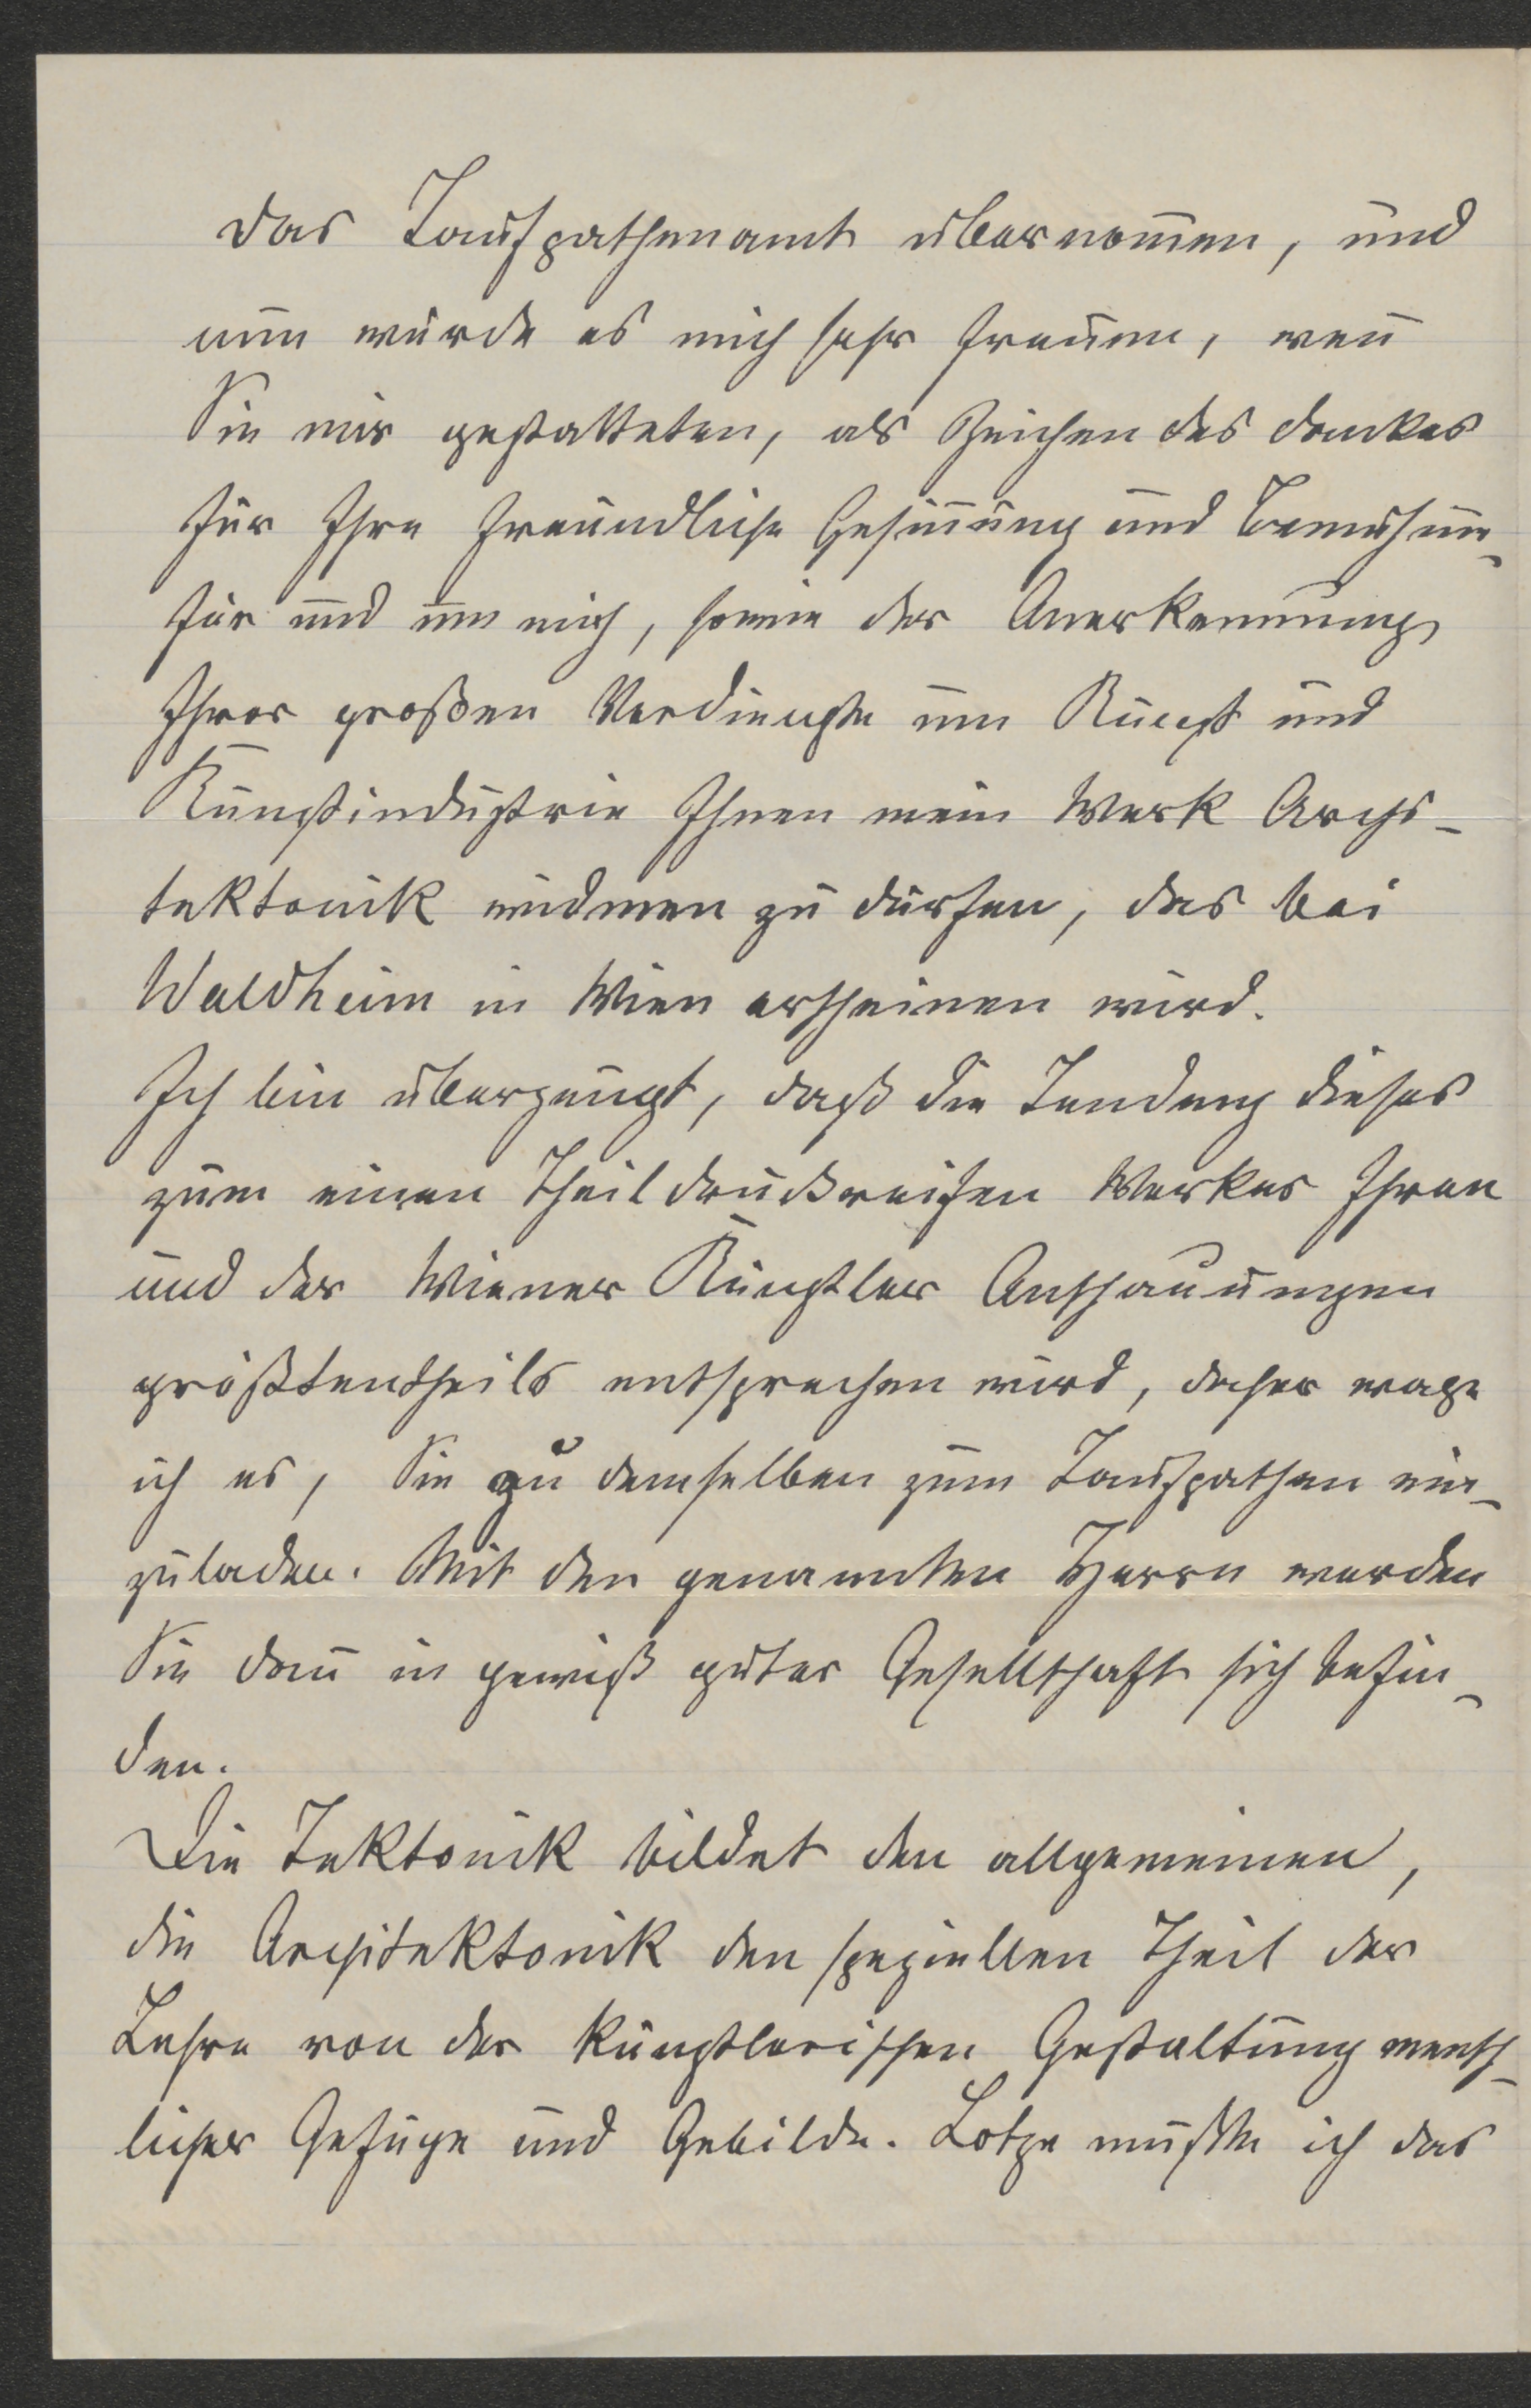 das Taufpathenamt übernom̄en, und
nun würde es mich sehr freuen, wen̄
Sie mir gestatteten, als Zeichen des Dankes
für Ihre freundliche Gesin̄ung und Bemühun-
für und um mich, sowie der Anerkennung
Ihrer großen Verdienste um Kunst und
Kunstindustrie Ihnen mein Werk Archi-
tektonik widmen zu dürfen, das bei
Waldheim in Wien erscheinen wird.
Ich bin überzeugt, daß die Tendenz dieses
zum einen Theil druckreifen Werkes Ihren
und der Wiener Künstler Anschauungen
größtentheils entsprechen wird, daher wage
ich es, Sie zu demselben zum Taufpathen ein-
zuladen. Mit den genannten Herrn werden
Sie dan̄ in gewiß guter Gesellschaft sich befin-
den.
Die Tektonik bildet den allgemeinen,
die Architektonik den speziellen Theil der
Lehre von der künstlerischen Gestaltung mensch-
licher Gefüge und Gebilde. Lotze mußte ich das